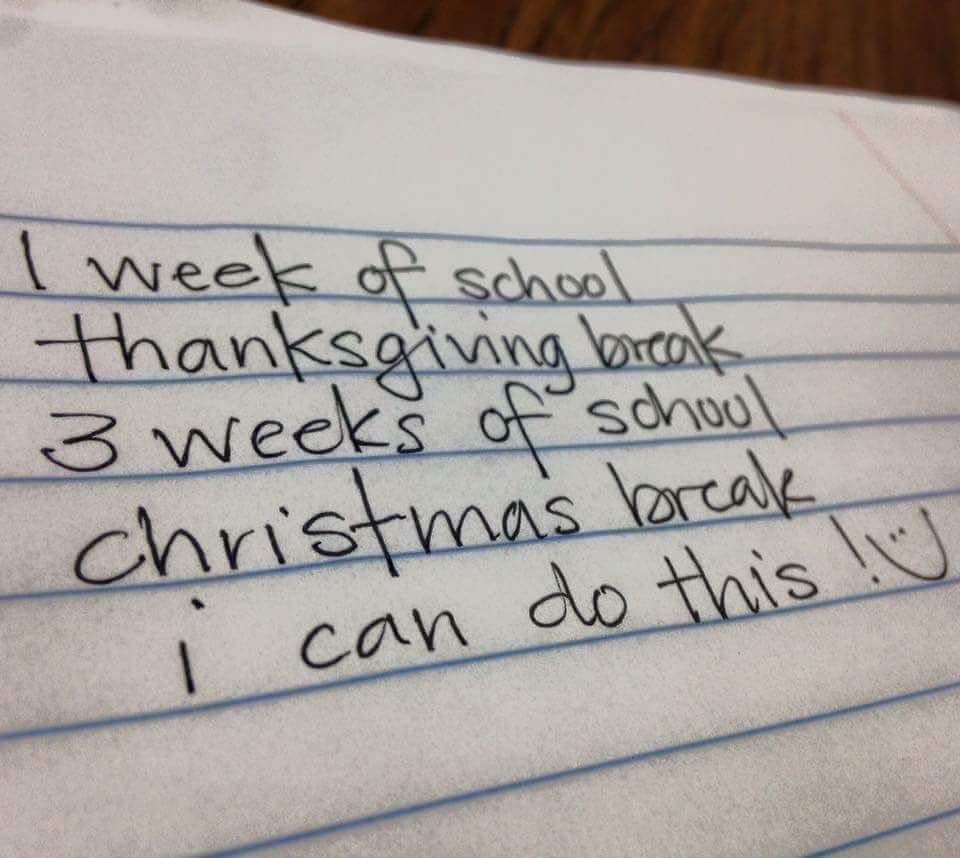 1 week of school
thanksgiving break
3 weeks of school
christmas break
i can do this!